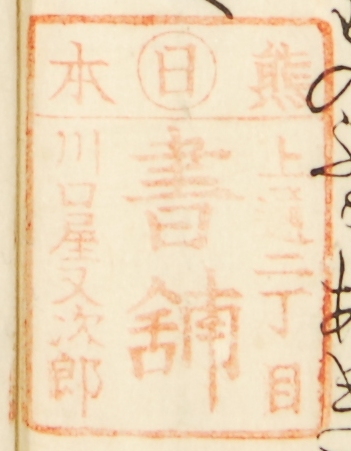 熊日本
上通二丁目
書舗
川口屋又次郎